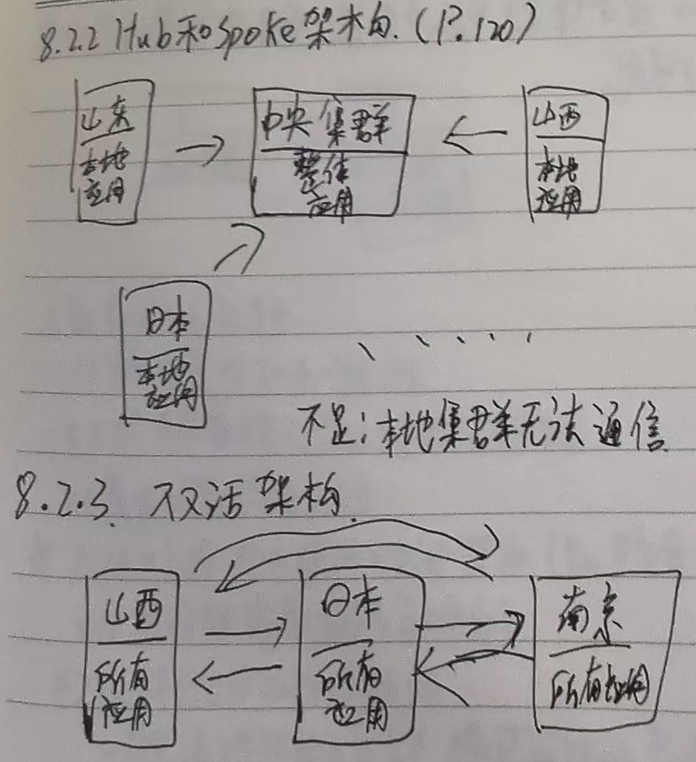 8.2.2 Hub和Spoke架构.(P.120)
山东
本地
应用
中央集群
整体
应用
山西
本地
应用
日本
本地
应用
不足:本地集群无法通信
8.2.3. 双活架构.
山西
所有
应用
日本
所有
应用
南京
所有应用